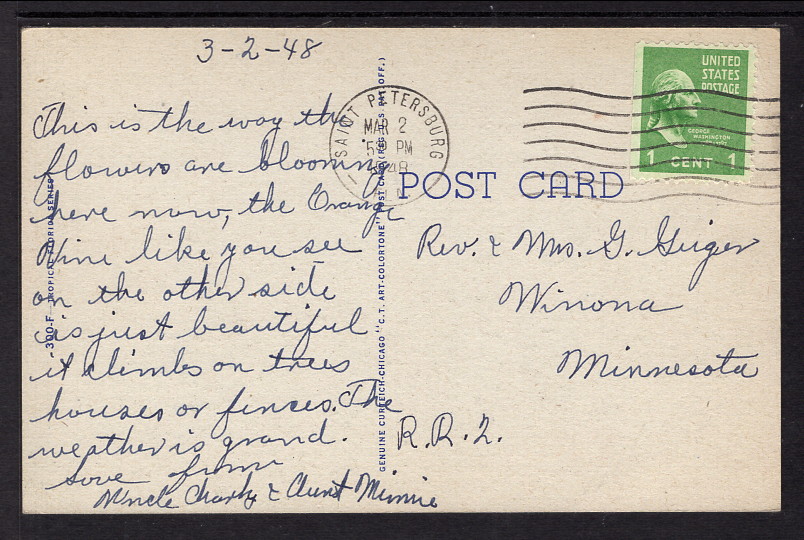 3-2-48
This is the way the
flowers are blooming
here now, the Orange
Vine like you see
on the other side
is just beautiful
it climbs on trees
houses or fences. The
weather is grand.
Love from
Uncle Charly & Aunt Minnie
300-F—TROPICAL FLORIDA SERIES
GENUINE CURTEICH-CHICAGO "C.T. ART-COLORTONE" POST CARD (REG. U.S. PAT. OFF.)
SAINT PETERSBURG
MAR 2
PM
1948
UNITED
STATES
POSTAGE
GEORGE
WASHINGTON
1 CENT 1
POST CARD
Rev. & Mrs. G. Geiger
Winona
Minnesota
R.R.2.